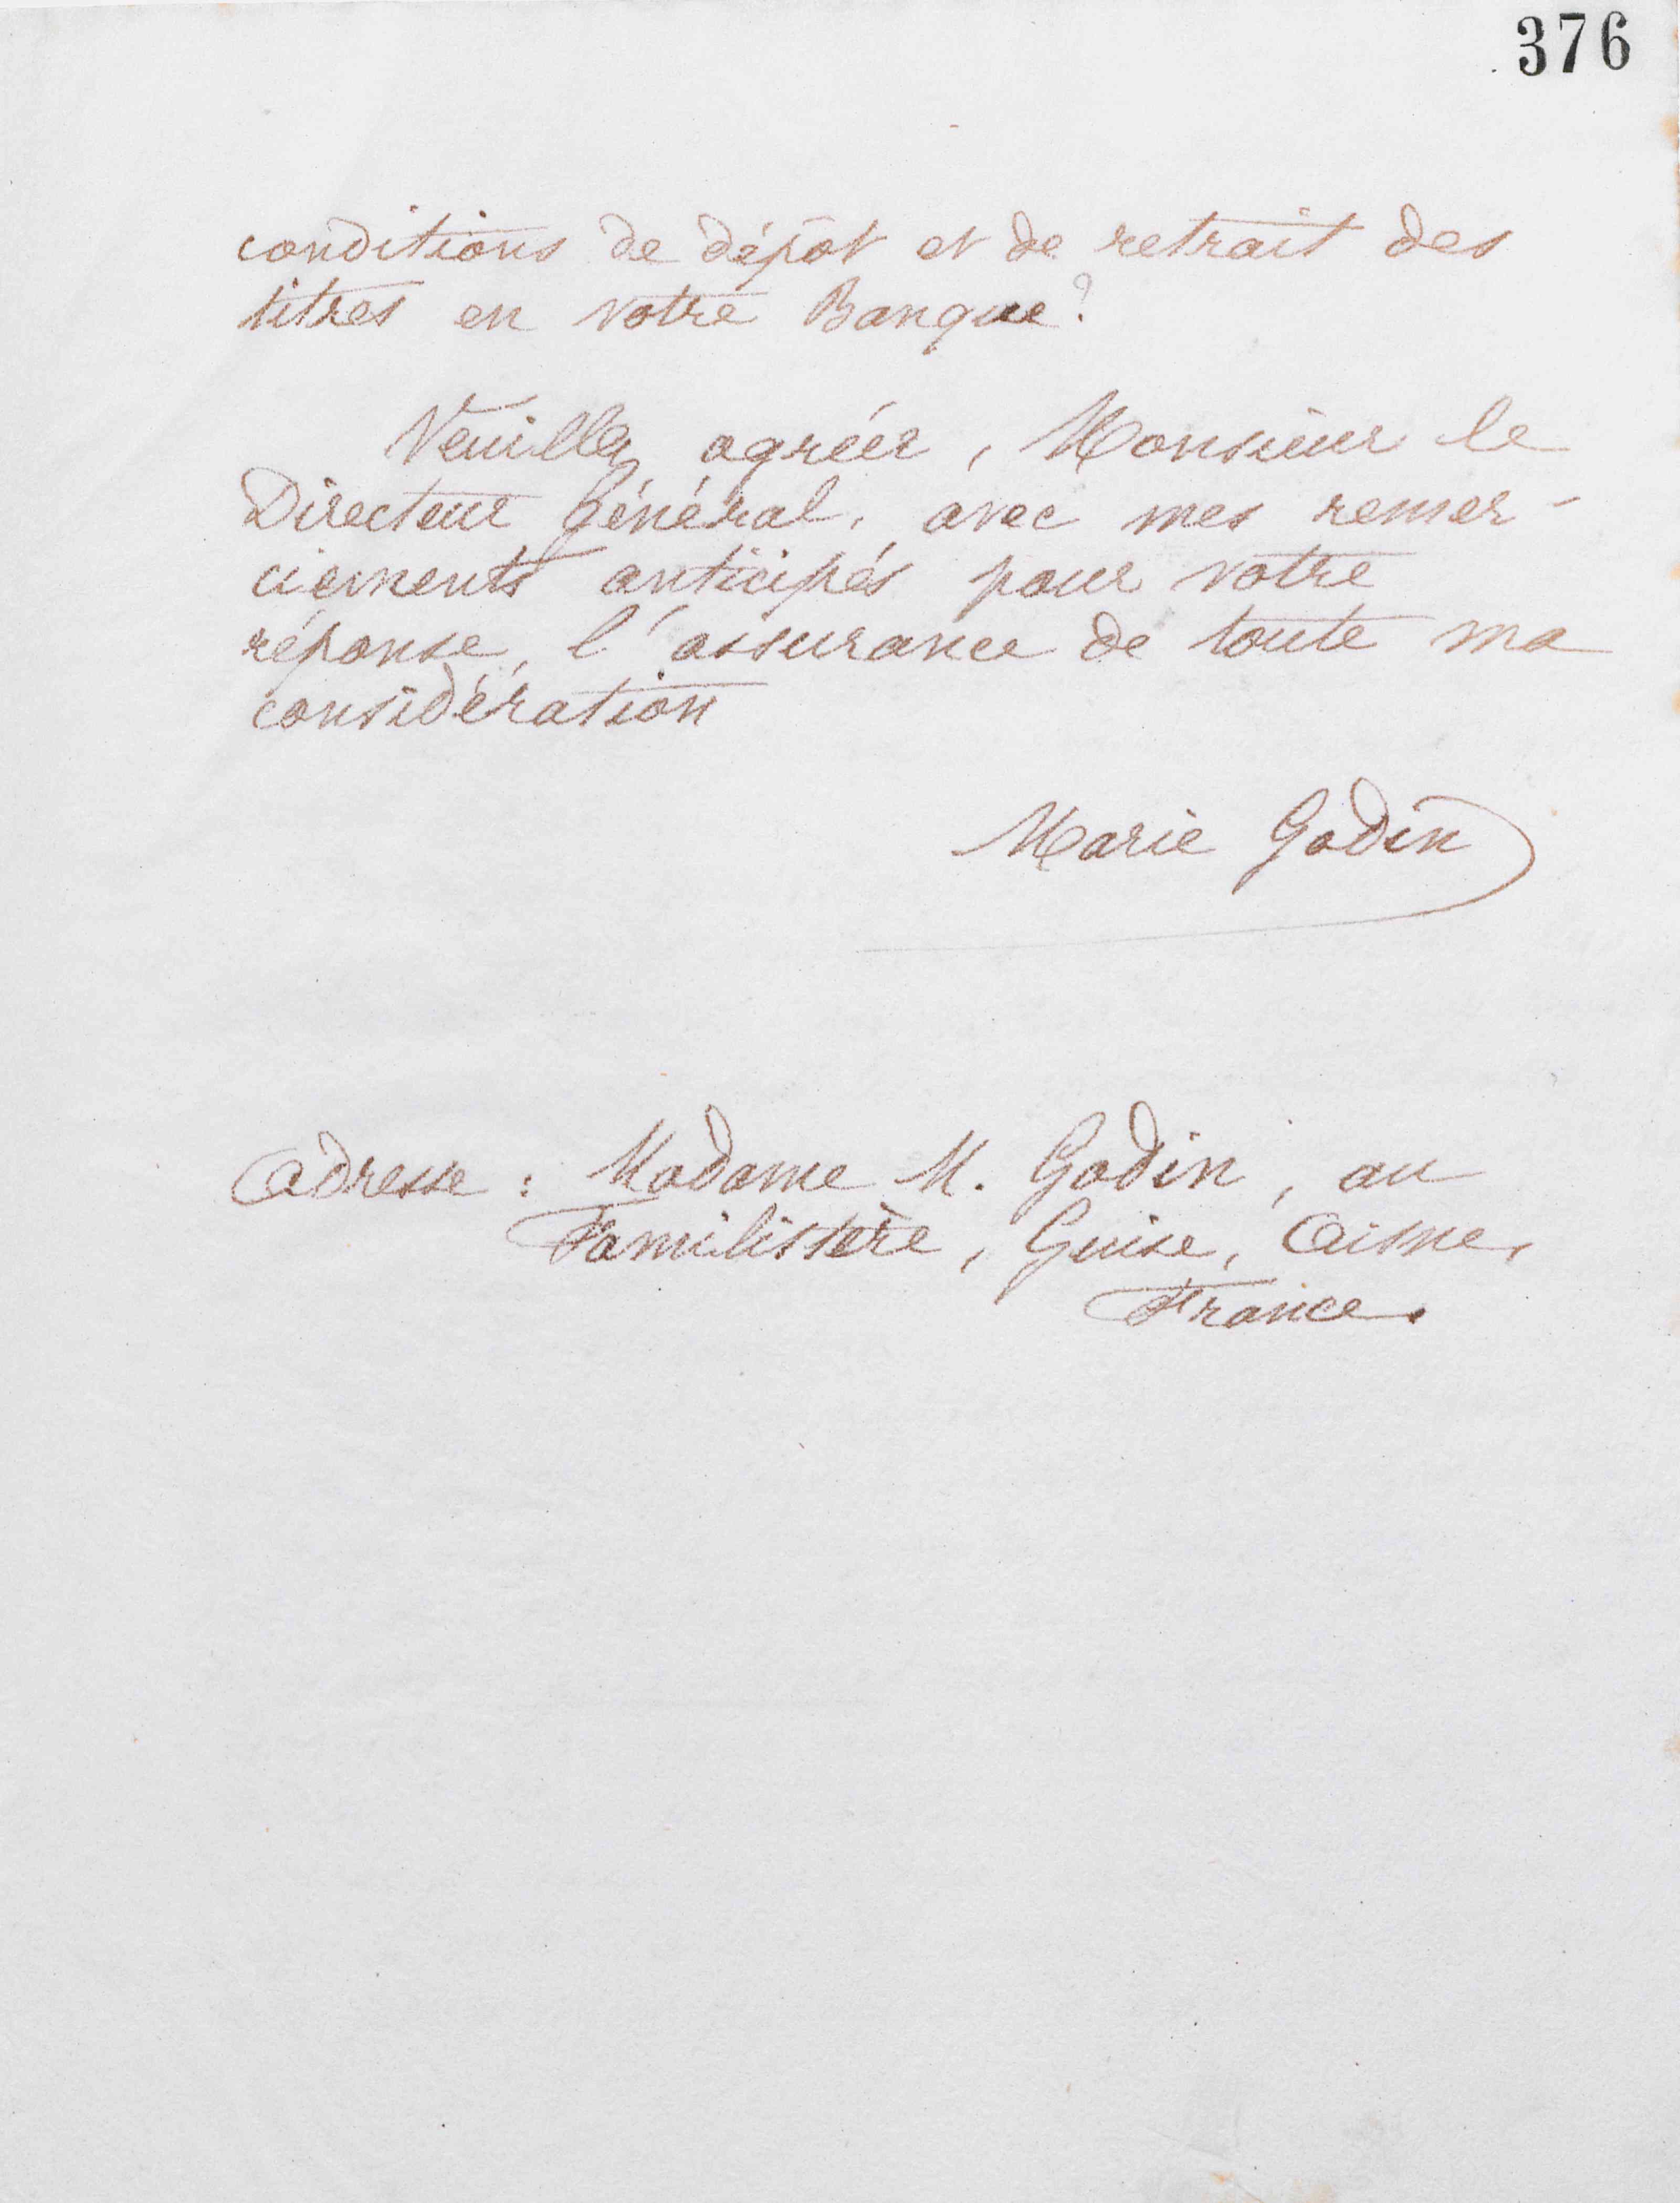 376
conditions de dépôt et de retrait des
titres en votre Banque ?
Veuillez agréer, Monsieur le
Directeur Général, avec mes remer-
ciements anticipés pour votre
réponse, l'assurance de toute ma
considération
Marie Godin
Adresse : Madame M. Godin, au
Familistère, Guise, Aisne,
France.